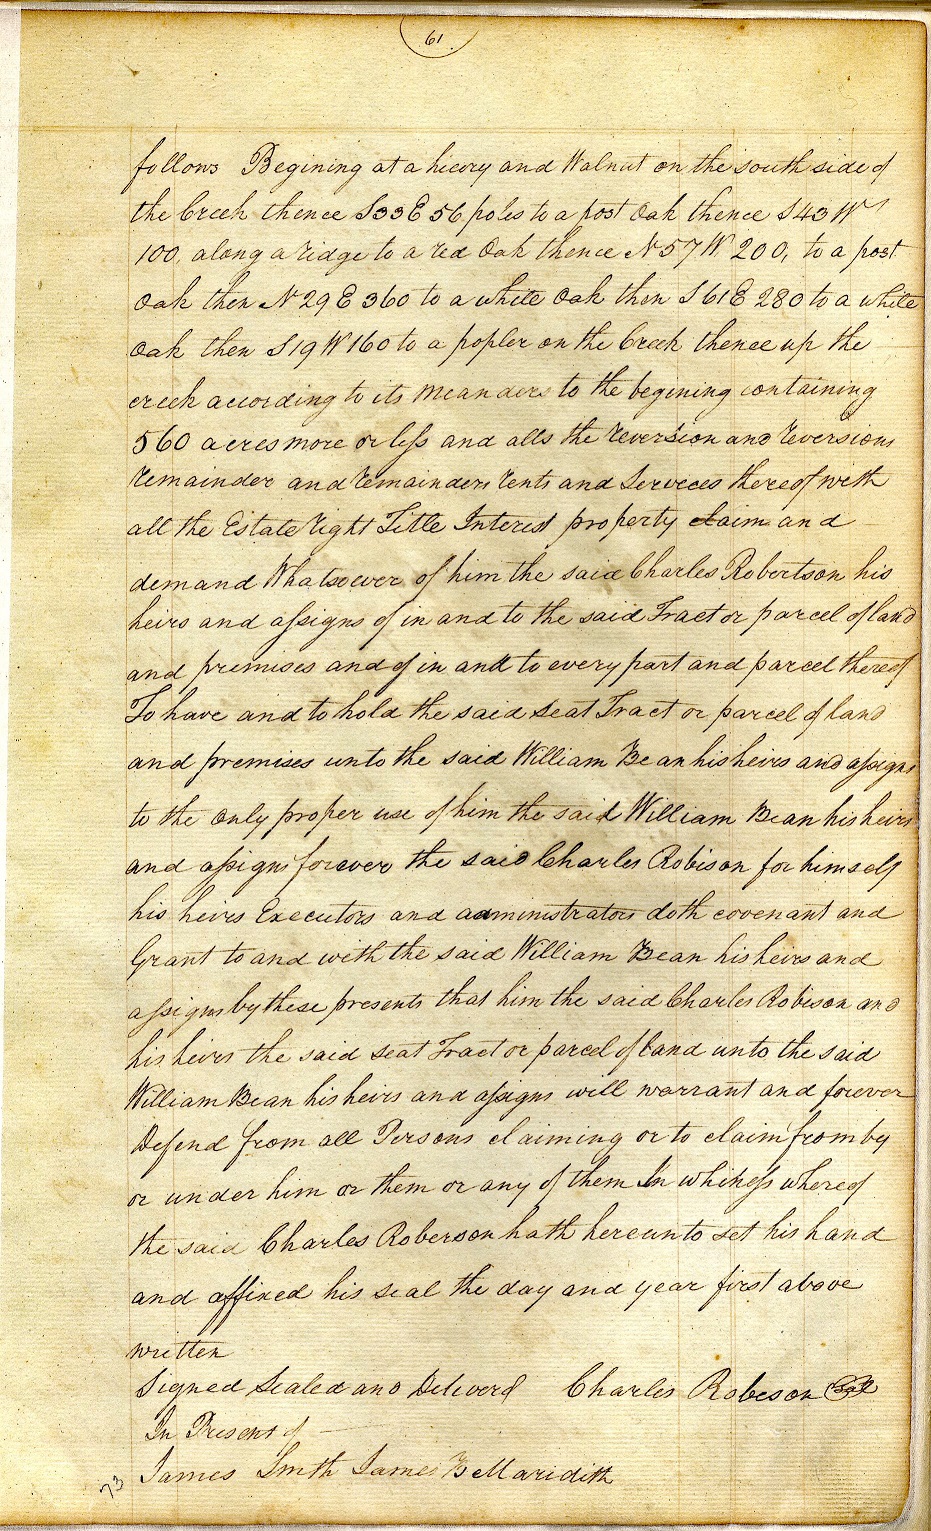 61
follows Begining at a hicory and Walnut on the south side of
the Creek thence S33E 56 poles to a post Oak thence S43W
100, along a ridge to a red Oak thence N57W 200, to a post
Oak then N29E 360 to a white Oak then S61E 280 to a white
Oak then S19W 160 to a popler on the Creek thence up the
creek according to its meanders to the begining containing
560 acres more or less and alls the reversion and reversions
remainder and remainders rents and Serveces thereof with
all the Estate right Title Interest property claim and
demand Whatsoever of him the said Charles Robertson his
heirs and assigns of in and to the said Tract or parcel of land
and premises and of in and to every part and parcel thereof
To have and to hold the said seat Tract or parcel of land
and premises unto the said William Bean his heirs and assigns
to the only proper use of him the said William Bean his heirs
and assigns forever the said Charles Robison for himself
his heirs Executors and administrators doth covenant and
Grant to and with the said William Bean his heirs and
assigns by these presents that him the said Charles Robison and
his heirs the said seat Tract or parcel of land unto the said
William Bean his heirs and assigns will warrant and forever
Defend from all Persons claiming or to claim from by
or under him or them or any of them In whitness whereof
the said Charles Roberson hath hereunto set his hand
and affixed his seal the day and year first above
written
Signed Sealed and Deliverd Charles Robeson Seal
In Present of
James Smith James B Maridith
73